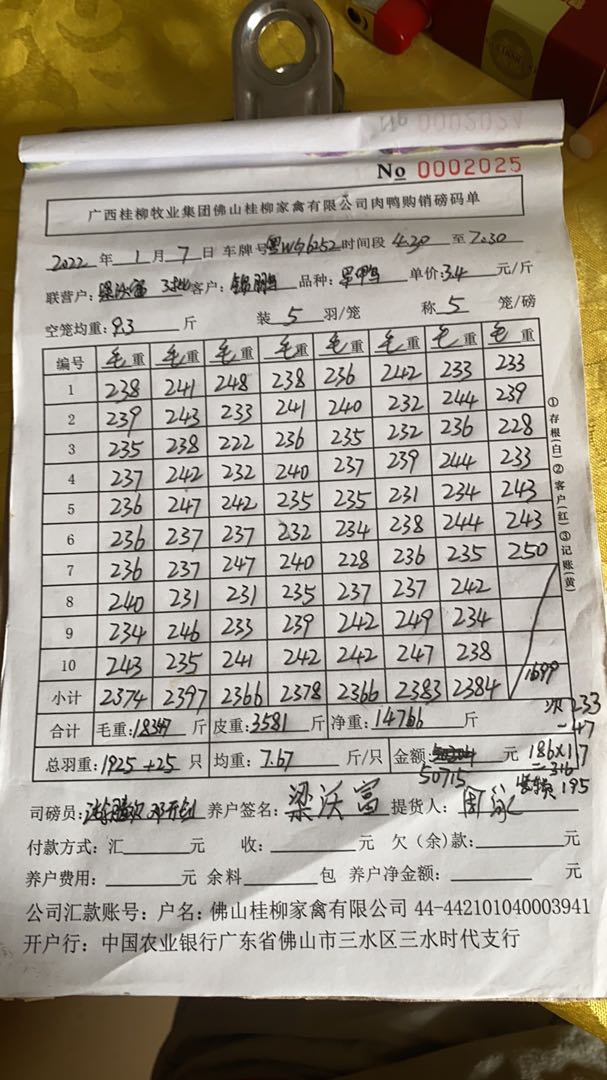 No 0002025
广西桂柳牧业集团佛山桂柳家禽有限公司肉鸭购销磅码单
2022 年 1 月 7 日 车牌号 粤W96252 时间段 4:30 至 7:30
联营户: 梁沃富 3批 客户: 锦鹏 品种: 黑鸭 单价: 3.4 元/斤
空笼均重: 9.3 斤 装 5 羽/笼 称 5 笼/磅
编号 毛重 毛重 毛重 毛重 毛重 毛重 毛重 毛重
1 238 241 248 238 236 242 233 233
2 239 243 233 241 240 232 244 239
3 235 238 222 236 235 232 236 228
4 237 242 232 240 237 239 244 233
5 236 247 242 235 235 231 234 243
6 236 237 237 232 234 238 244 243
7 236 237 247 240 228 236 235 250
8 240 231 231 235 237 237 242
9 234 246 233 239 242 249 234
10 243 235 241 242 242 247 238
小计 2374 2397 2366 2378 2366 2383 2384 1699
合计 毛重: 18347 斤 皮重: 3581 斤 净重: 14766 斤
次 233
-47
总羽重: 1925 +25 只 均重: 7.67 斤/只 金额: 元
186×1.7
=316
50715
195
司磅员: 养户签名: 梁沃富 提货人: 周
付款方式: 汇 元 收: 元 欠(余)款: 元
养户费用: 元 余料 包 养户净金额: 元
公司汇款账号: 户名: 佛山桂柳家禽有限公司 44-442101040003941
开户行: 中国农业银行广东省佛山市三水区三水时代支行
①存根(白)②客户(红)③记账(黄)